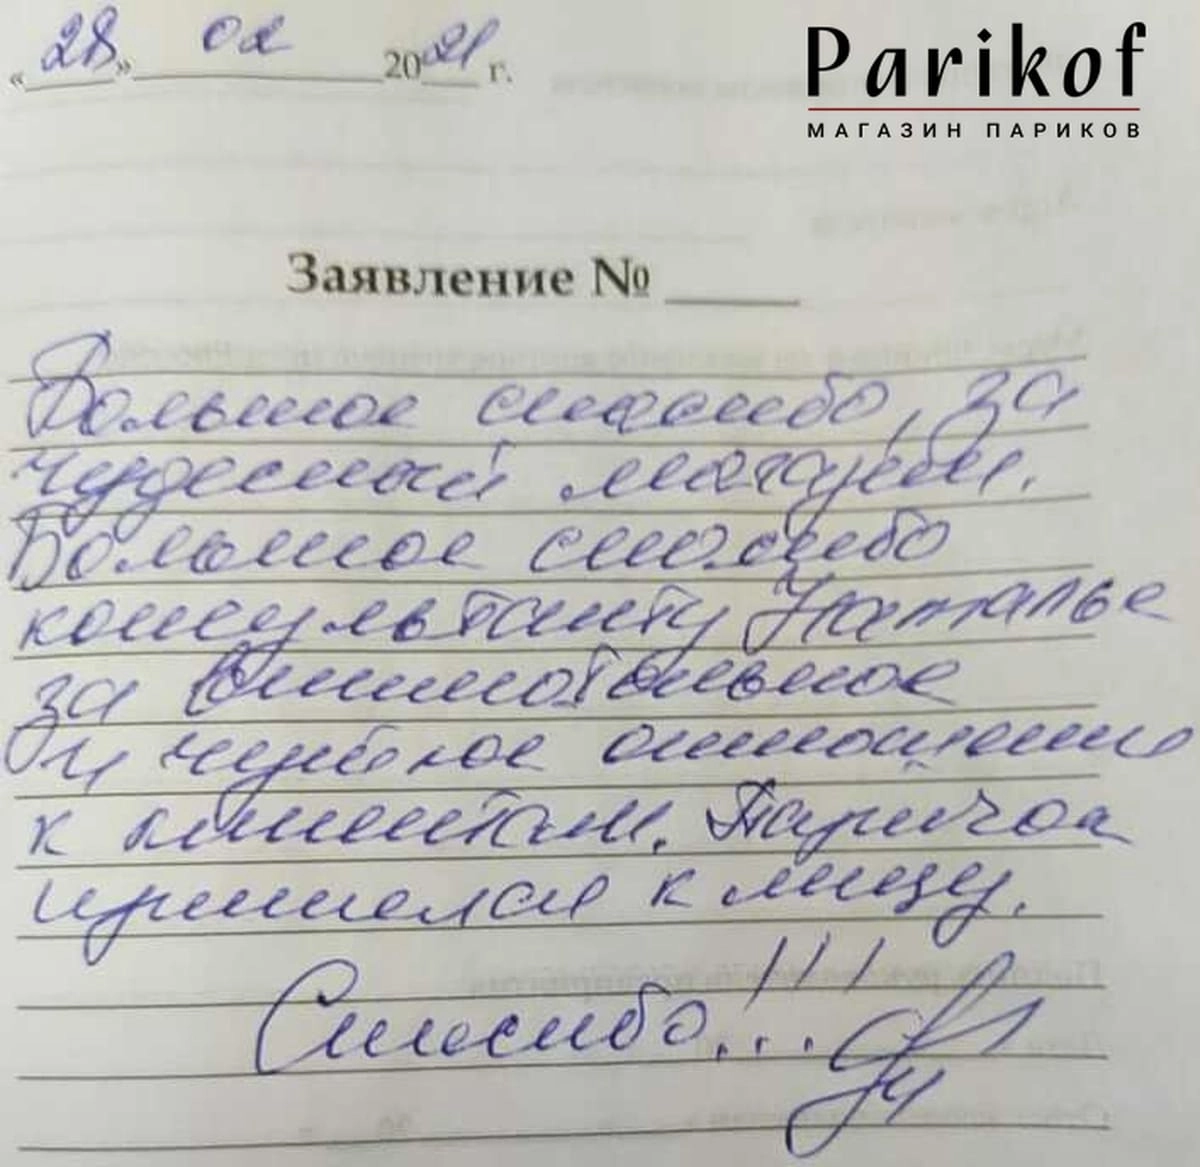 «28» 02 2021 г.
Parikof
МАГАЗИН ПАРИКОВ
Заявление № ____
Большое спасибо, за
чудесный магазин.
Большое спасибо
консультанту Наталье
за внимательное
и чуткое отношение
к клиентам. Паричок
пришелся к лицу.
Спасибо...!!!